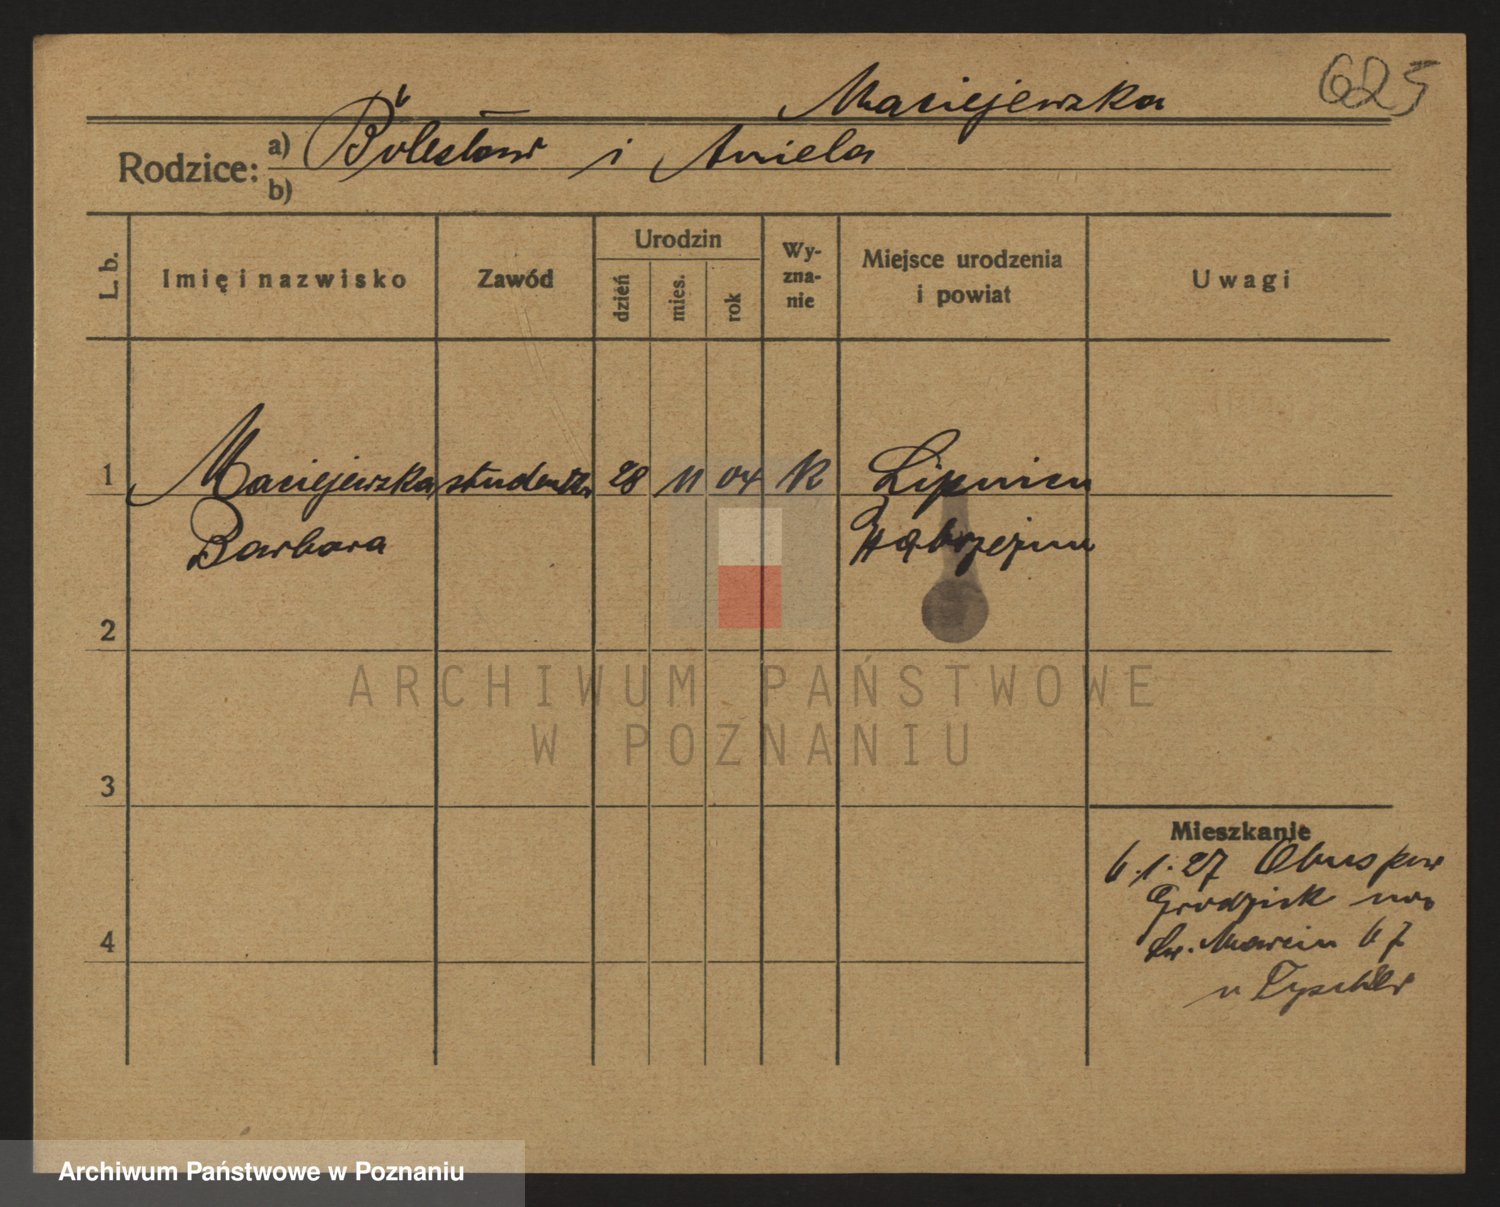 Maciejewska
625
Rodzice: a) Bolesław i Aniela
b)
L. b.
Imię i nazwisko
Zawód
Urodzin
dzień
mies.
rok
Wy-
zna-
nie
Miejsce urodzenia
i powiat
Uwagi
1 Maciejewska studentka 28 11 04 K Lipnica
Barbara Wąbrzeźno
2
3
4
Mieszkanie
6.1.27 pow
Grodzisk
św. Marcin 67
u
ARCHIWUM PAŃSTWOWE
W POZNANIU
Archiwum Państwowe w Poznaniu